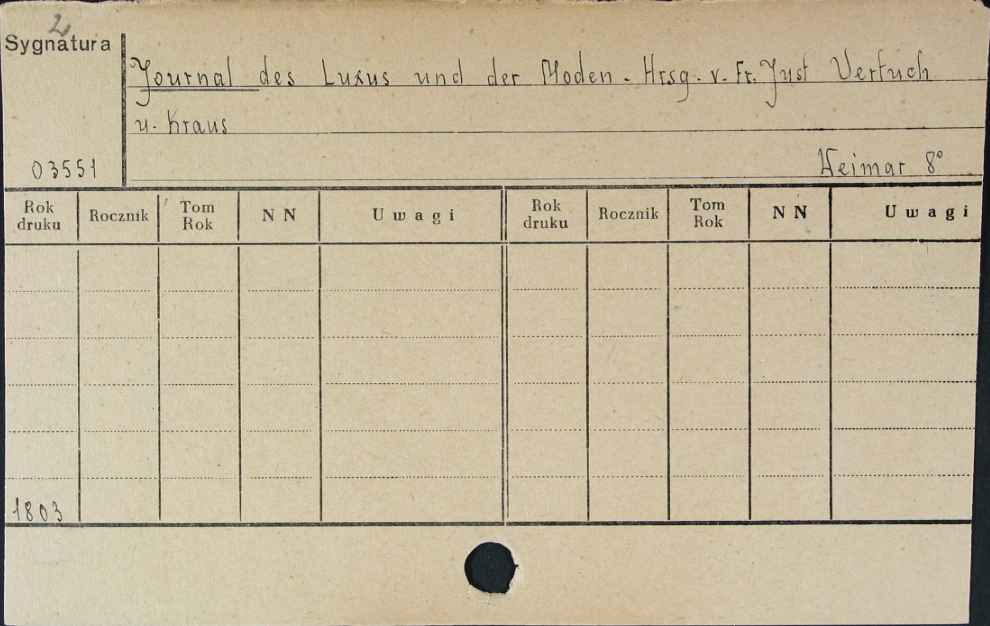 2
Sygnatura
Journal des Luxus und der Moden. Hrsg. v. Fr. Just Vertuch
u. Kraus
03551
Weimar 8°
Rok druku Rocznik Tom Rok NN Uwagi Rok druku Rocznik Tom Rok NN Uwagi
1803